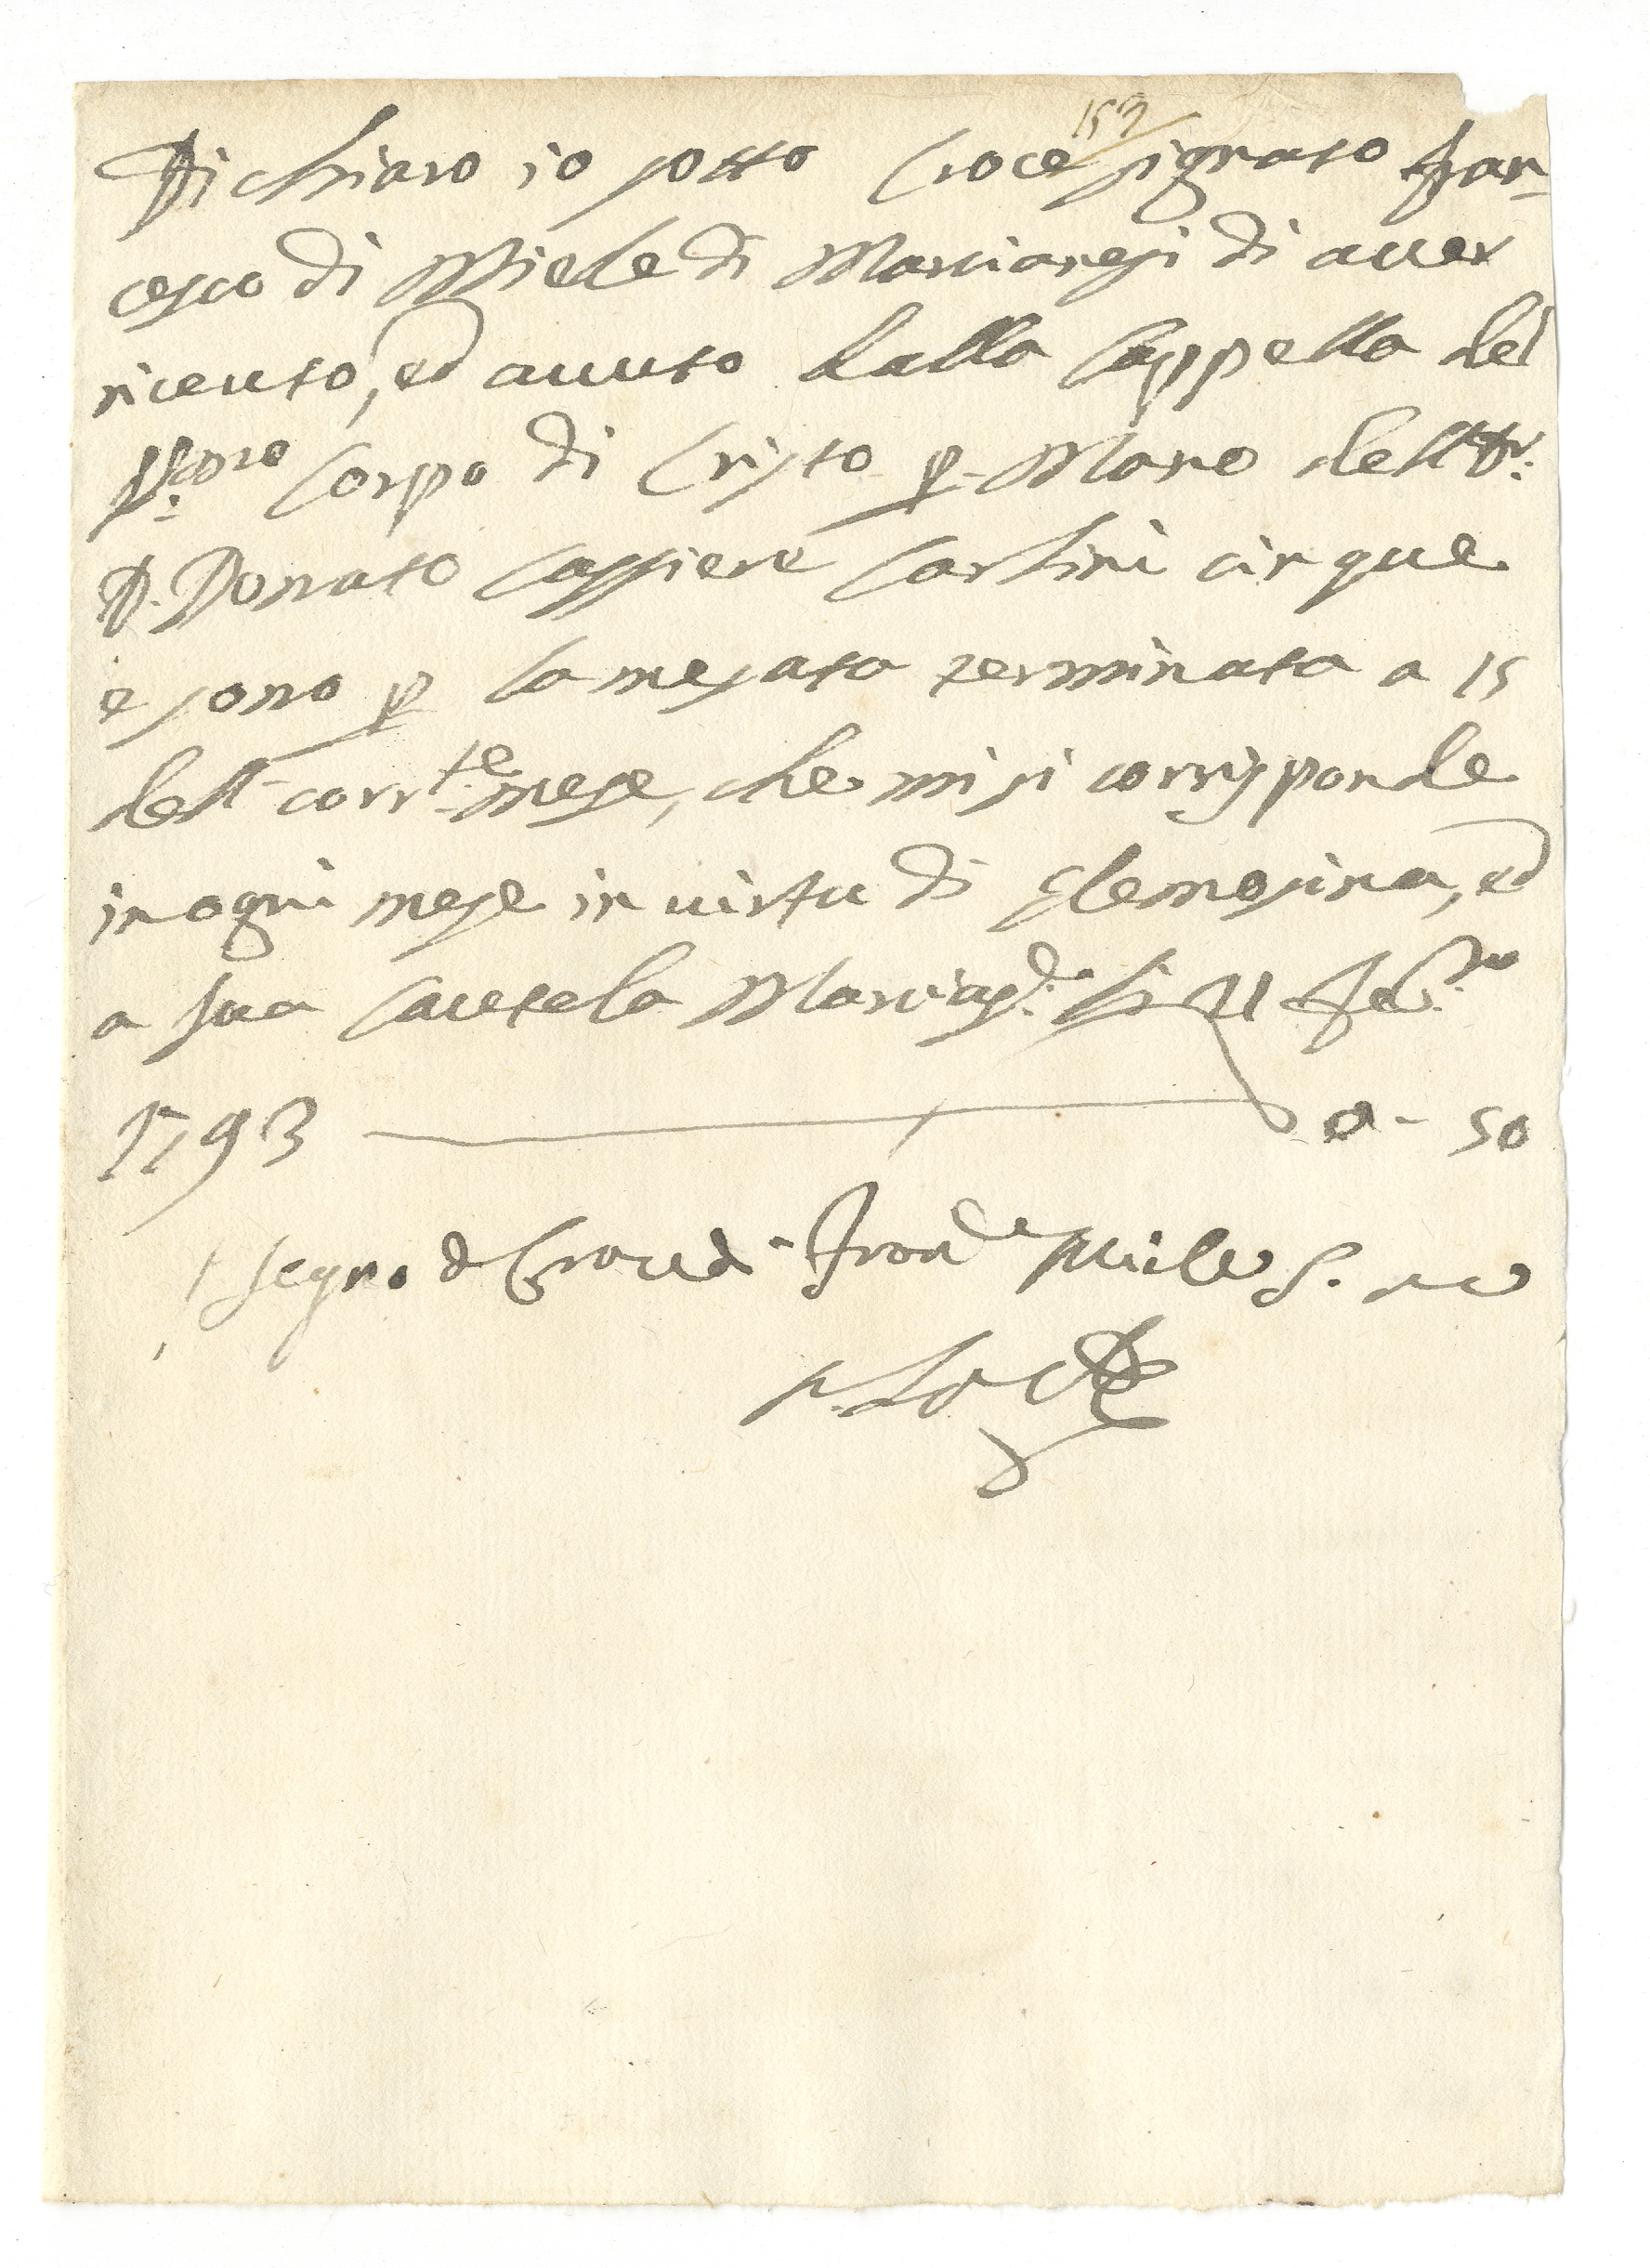 153
Dichiaro io sotto Croce signato Fran-
cesco di Miele di Marcianesi di aver
riceuto, ed avuto dalla Cappella del
Corpo di Cristo p Mano dell
D. Donato Cassiere Carlini cinque
e sono p la mesata terminata a 15
dell corr.te mese, che mi si corrisponde
in ogni mese in virtu di Elemosina, ed
a sua Cautela li 21
1793 50
Segno di Croce di Miele